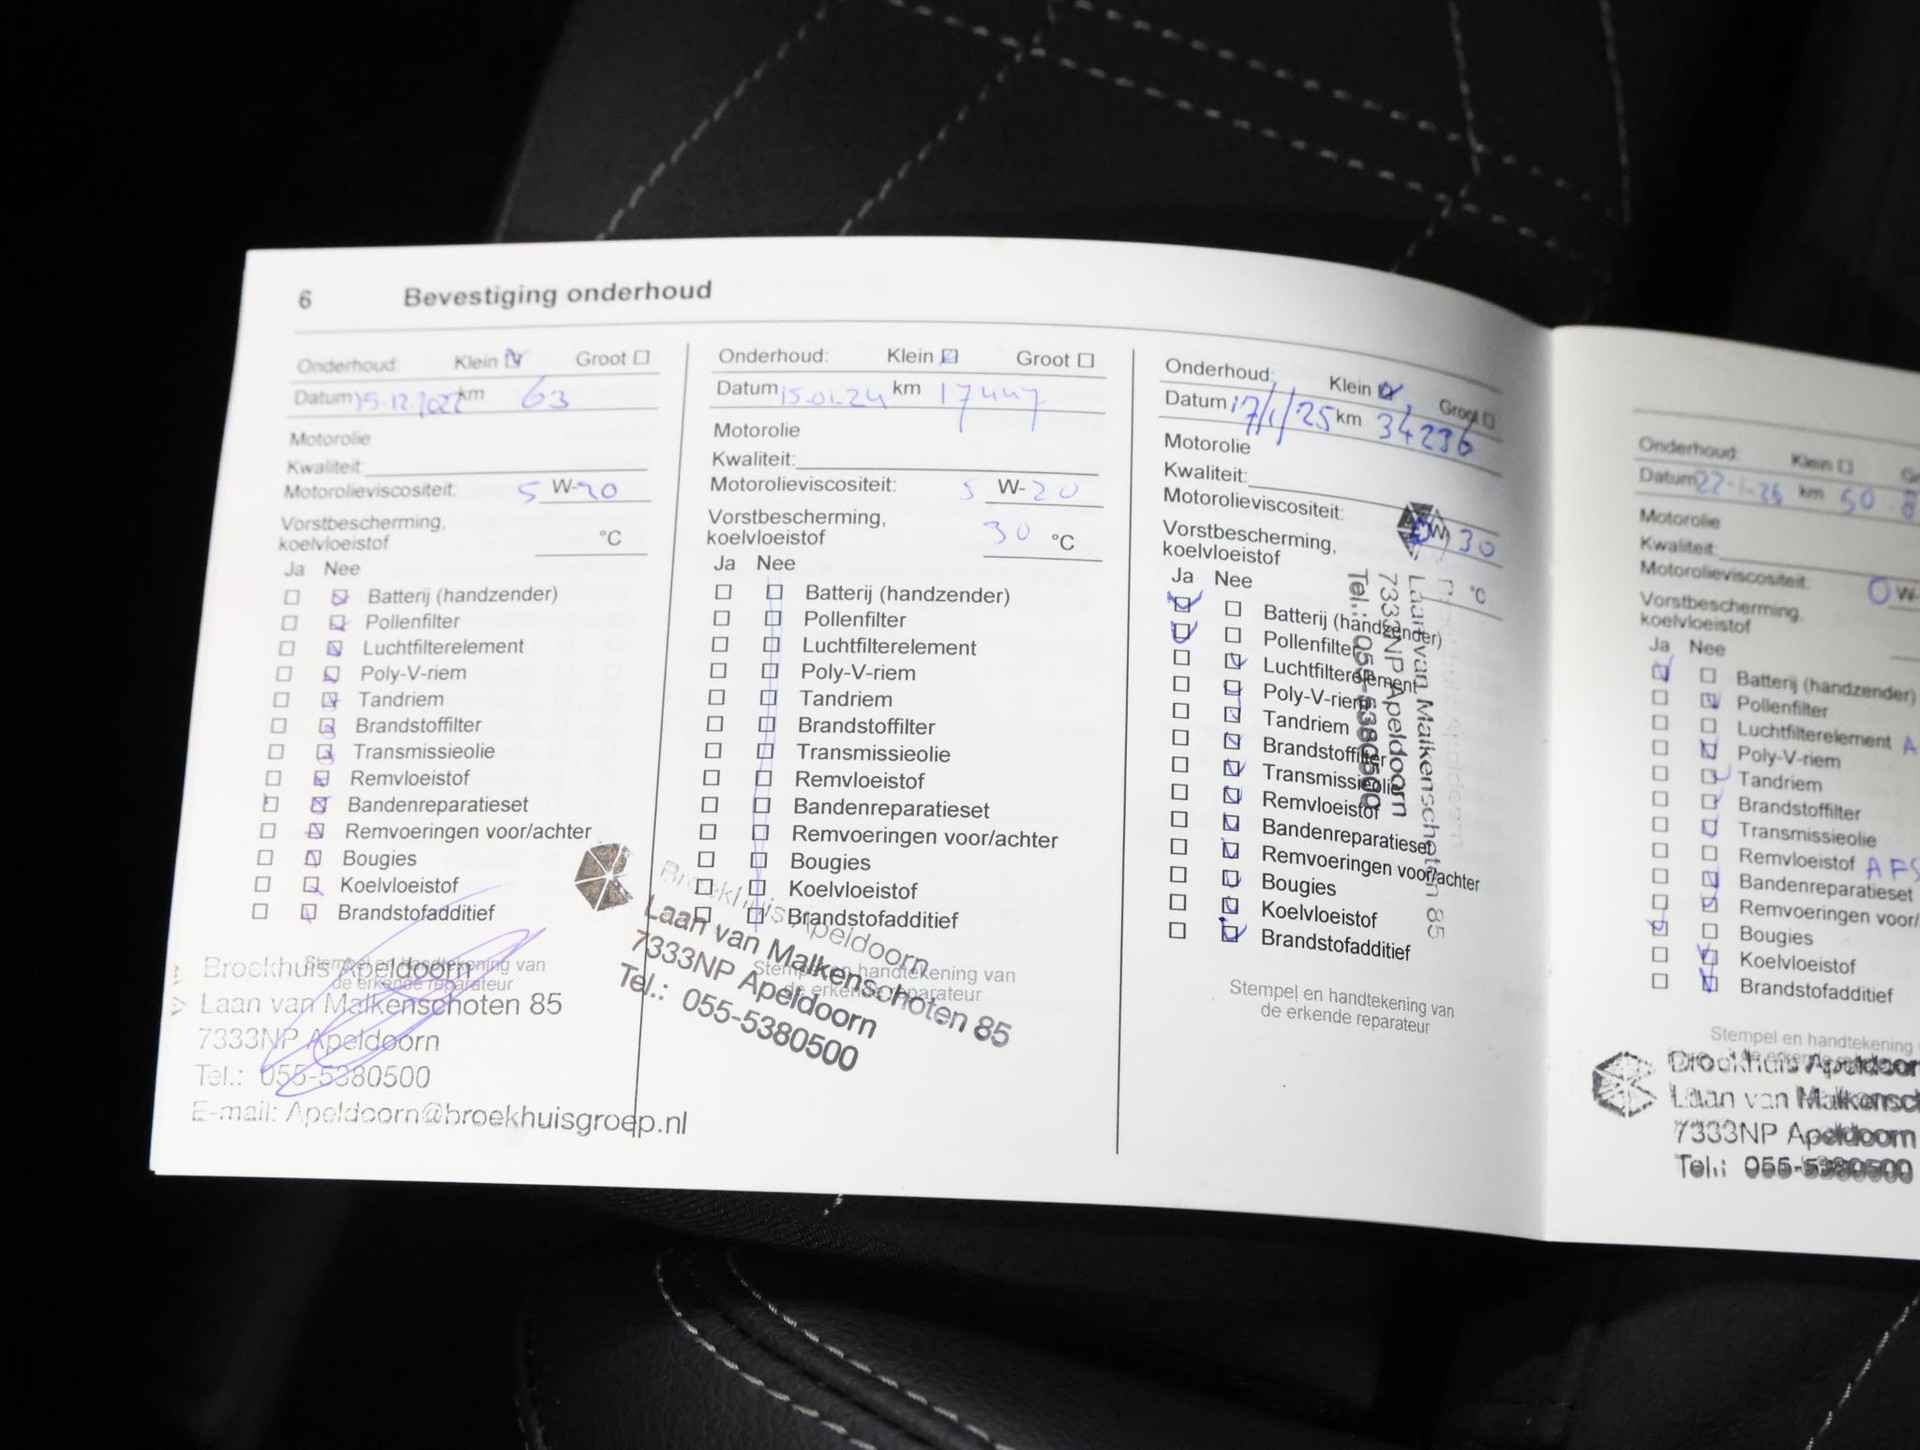 6 Bevestiging onderhoud
Onderhoud: Klein Groot
Datum 15.12.2022 km 63
Motorolie
Kwaliteit:
Motorolieviscositeit: 5 W-20
Vorstbescherming,
koelvloeistof °C
Ja Nee
Batterij (handzender)
Pollenfilter
Luchtfilterelement
Poly-V-riem
Tandriem
Brandstoffilter
Transmissieolie
Remvloeistof
Bandenreparatieset
Remvoeringen voor/achter
Bougies
Koelvloeistof
Brandstofadditief
Stempel en handtekening van
de erkende reparateur
Broekhuis Apeldoorn
Laan van Malkenschoten 85
7333NP Apeldoorn
Tel.: 055-5380500
E-mail: Apeldoorn@broekhuisgroep.nl
Onderhoud: Klein Groot
Datum 15.01.24 km 17447
Motorolie
Kwaliteit:
Motorolieviscositeit: 5 W-20
Vorstbescherming,
koelvloeistof 30 °C
Ja Nee
Batterij (handzender)
Pollenfilter
Luchtfilterelement
Poly-V-riem
Tandriem
Brandstoffilter
Transmissieolie
Remvloeistof
Bandenreparatieset
Remvoeringen voor/achter
Bougies
Koelvloeistof
Brandstofadditief
Stempel en handtekening van
de erkende reparateur
Broekhuis Apeldoorn
Laan van Malkenschoten 85
7333NP Apeldoorn
Tel.: 055-5380500
Onderhoud: Klein Groot
Datum 17/1/25 km 34236
Motorolie
Kwaliteit:
Motorolieviscositeit: W 30
Vorstbescherming,
koelvloeistof °C
Ja Nee
Batterij (handzender)
Pollenfilter
Luchtfilterelement
Poly-V-riem
Tandriem
Brandstoffilter
Transmissieolie
Remvloeistof
Bandenreparatieset
Remvoeringen voor/achter
Bougies
Koelvloeistof
Brandstofadditief
Stempel en handtekening van
de erkende reparateur
Laan van Malkenschoten 85
7333NP Apeldoorn
Tel.: 055-5380500
Onderhoud: Klein
Datum 22-1-26 km 50.8
Motorolie
Kwaliteit:
Motorolieviscositeit: 0 W-
Vorstbescherming,
koelvloeistof
Ja Nee
Batterij (handzender)
Pollenfilter
Luchtfilterelement A
Poly-V-riem
Tandriem
Brandstoffilter
Transmissieolie
Remvloeistof AFS
Bandenreparatieset
Remvoeringen voor/
Bougies
Koelvloeistof
Brandstofadditief
Stempel en handtekening
Broekhuis Apeldoor
Laan van Malkensc
7333NP Apeldoorn
Tel.: 055-5380500